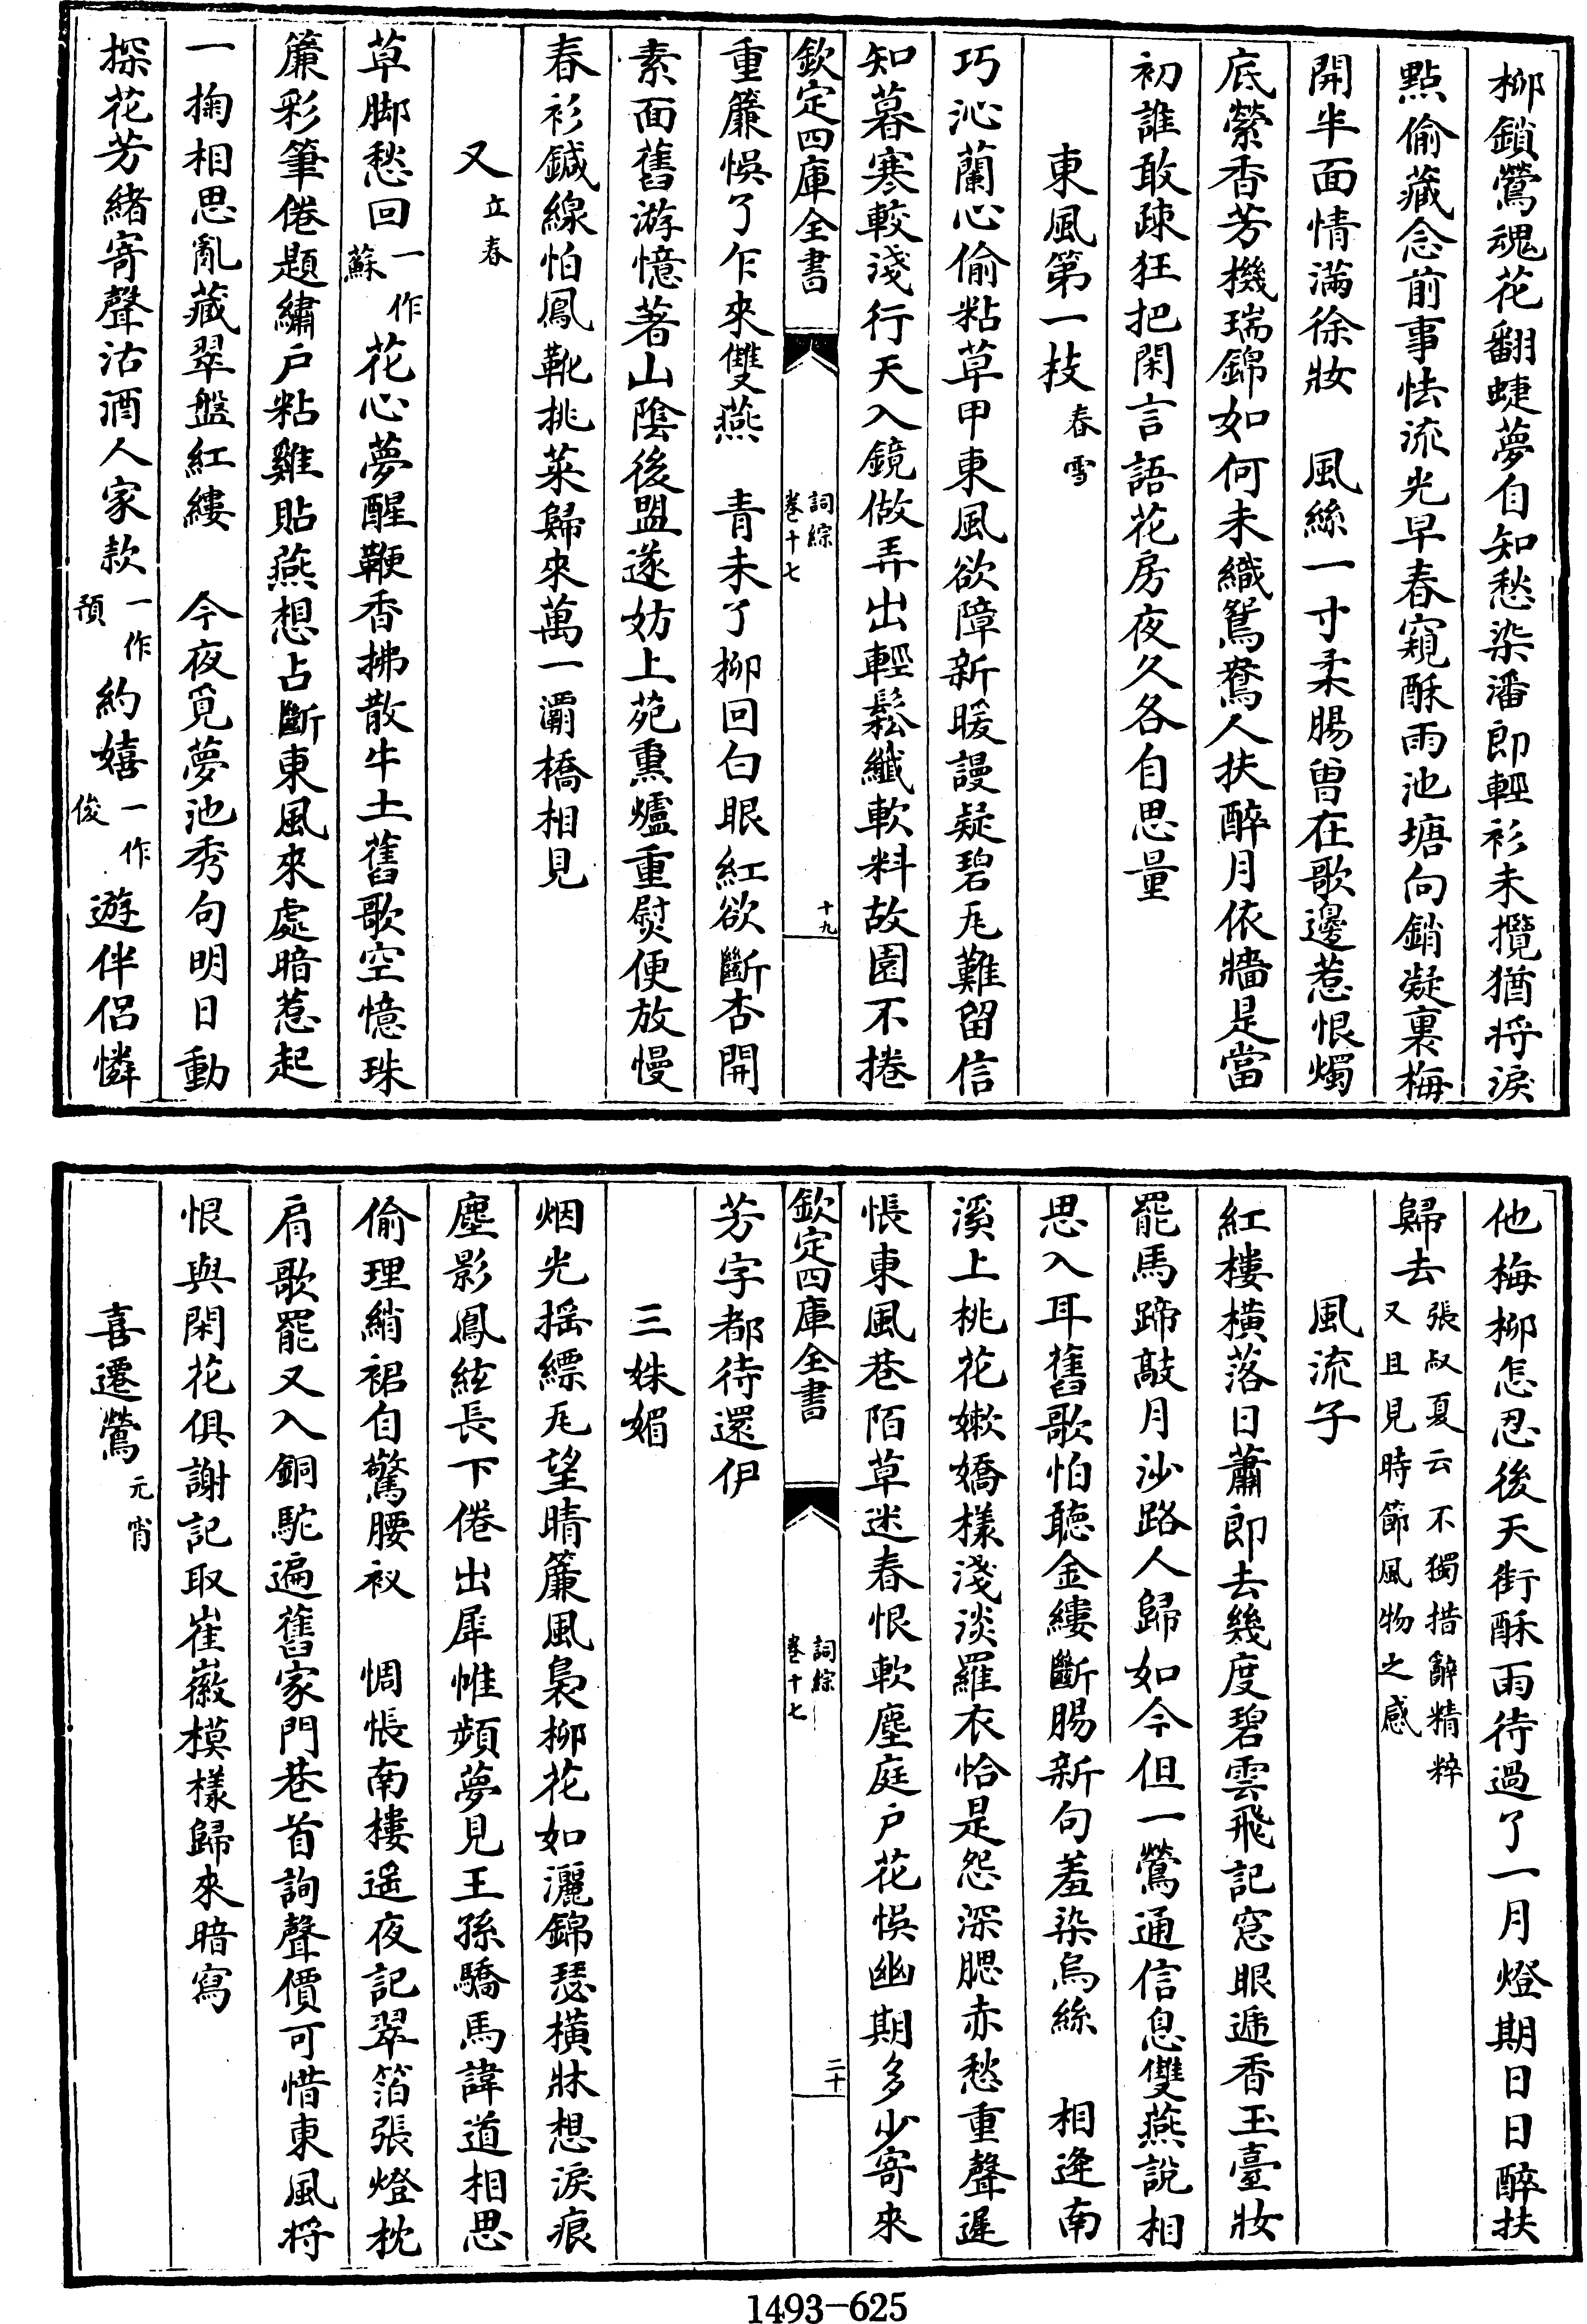 柳鎖鶯魂花翻蝶夢自知愁染潘郎輕衫未攬猶將淚
點偷藏念前事怯流光早春窺酥雨池塘向銷凝裏梅
開半面情滿徐妝　風絲一寸柔腸曾在歌邊惹恨燭
底縈香芳機瑞錦如何未織鴛鴦人扶醉月依牆是當
初誰敢疎狂把閑言語花房夜久各自思量
東風第一技春雪
巧沁蘭心偷粘草甲東風欲障新暖謾疑碧瓦難留信
知暮寒較淺行天入鏡做弄出輕鬆纖軟料故園不捲
欽定四庫全書　詞綜卷十七　十九
重簾悞了乍來雙燕　青未了柳回白眼紅欲斷杏開
素面舊游憶著山陰後盟遂妨上苑熏爐重熨便放慢
春衫鍼線怕鳳靴挑菜歸來萬一灞橋相見
又立春
草脚愁回一作蘇花心夢醒鞭香拂散牛土舊歌空憶珠
簾彩筆倦題繡户粘雞貼燕想占斷東風來處暗惹起
一掬相思亂藏翠盤紅縷　今夜覓夢池秀句明日動
探花芳緒寄聲沽酒人家款一作預約嬉一作俊遊伴侣憐
他梅柳怎忍後天街酥雨待過了一月燈期日日醉扶
歸去張叔夏云不獨措辭精粹又且見時節風物之感
風流子
紅樓横落日蕭郎去幾度碧雲飛記窓眼遞香玉臺妝
罷馬蹄敲月沙路人歸如今但一鶯通信息雙燕說相
思入耳舊歌怕聽金縷斷腸新句羞染烏絲　相逢南
溪上桃花嫩嬌樣淺淡羅衣恰是怨深腮赤愁重聲遲
悵東風巷陌草迷春恨軟塵庭户花悞幽期多少寄來
欽定四庫全書　詞綜卷十七　二十
芳字都待還伊
三姝媚
烟光摇縹瓦望晴簷風裊柳花如灑錦瑟横牀想淚痕
塵影鳳絃長下倦出犀帷頻夢見王孫驕馬諱道相思
偷理綃裙自驚腰衩　惆悵南樓遥夜記翠箔張燈枕
肩歌罷又入銅駝遍舊家門巷首詢聲價可惜東風將
恨與閑花俱謝記取崔徽模樣歸來暗寫
喜遷鶯元宵
1493—625